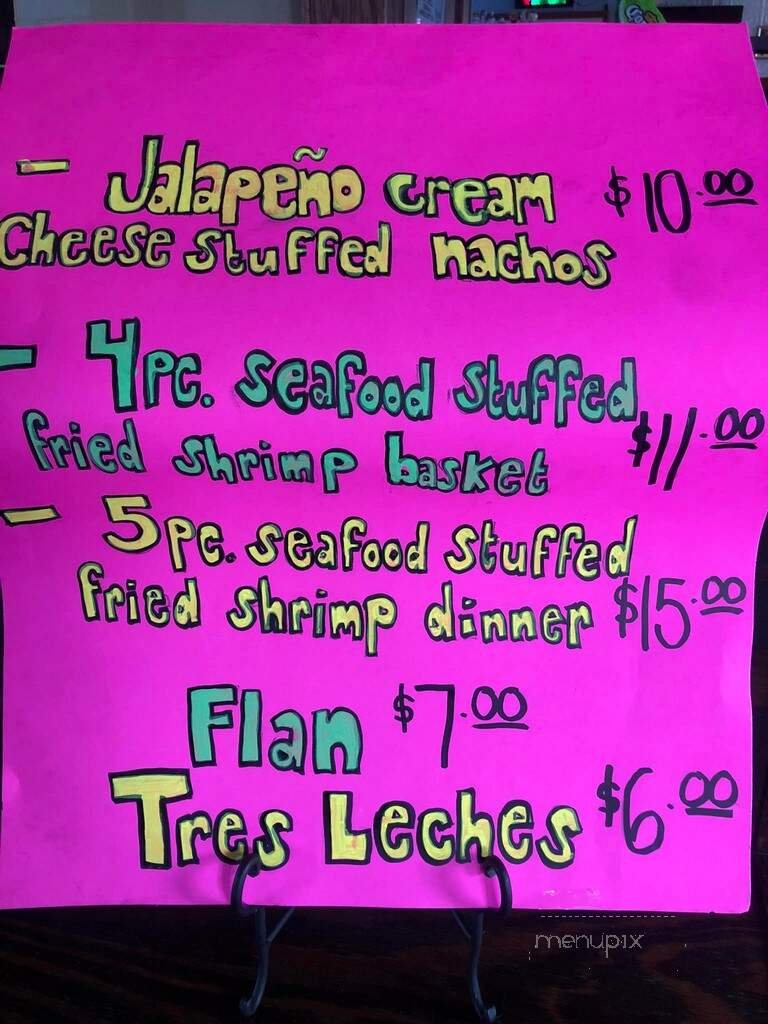 - Jalapeño cream $10.00
Cheese stuffed nachos
- 4pc. seafood stuffed
fried shrimp basket $11.00
- 5pc. seafood stuffed
fried shrimp dinner $15.00
Flan $7.00
Tres Leches $6.00
menupix